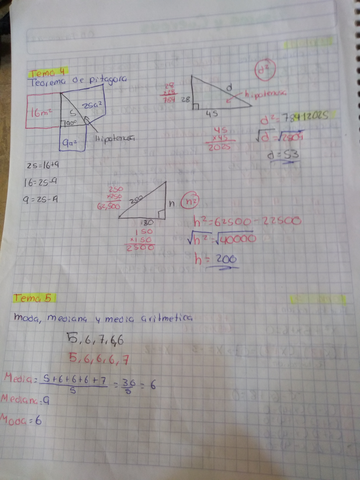 Tema 4
Teorema de pitagora
16m²
25a²
5
9a²
hipotenusa
25=16+9
16=25-9
9=25-A
28
784
28
d
hipotenusa
45
d²
45
×45
2025
d²=784+2025
√d √2809
d=53
250
250
62,500
250
h
150
h²
150
×150
2500
h²=62500-22500
√h²=√40000
h=200
Tema 5
moda, mediana y media aritmetica
5,6,7,6,6
5,6,6,6,7
Media=5+6+6+6+7/5=30/5=6
Mediana=
Moda=6